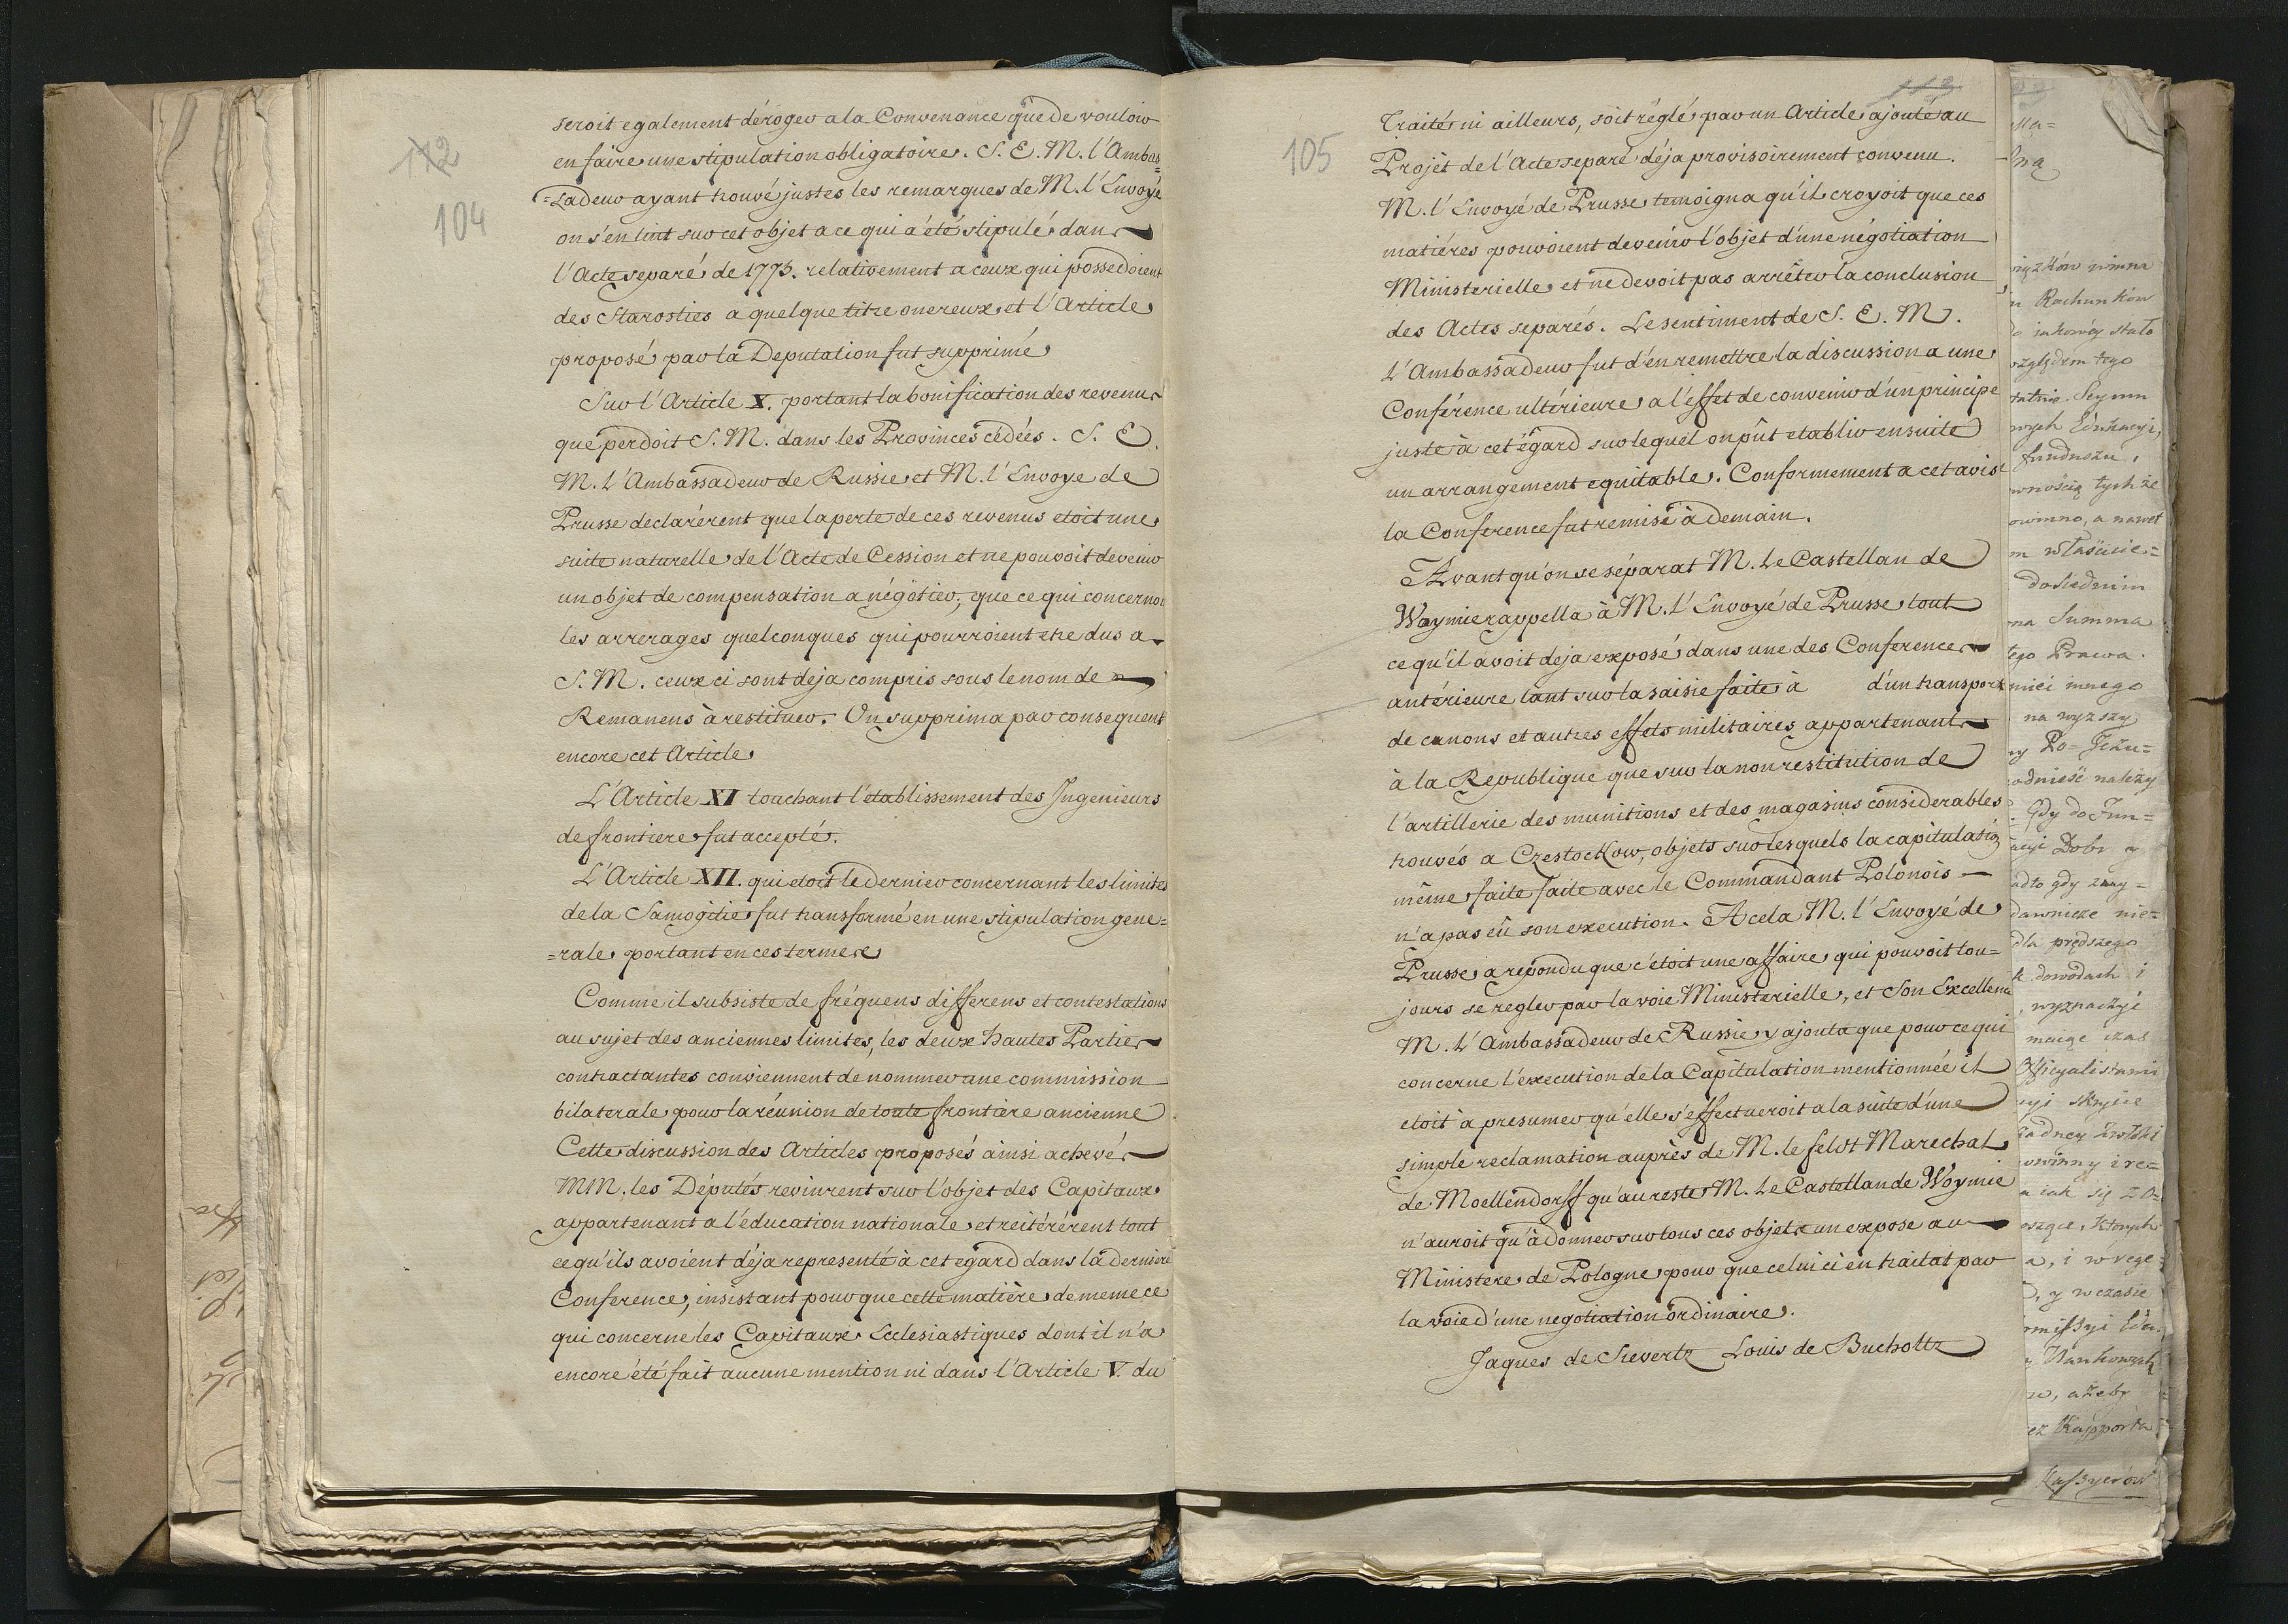 112
104
seroit egalement déroger a la Convenance que de vouloir
en faire une stipulation obligatoire. S. E. M. l'Ambas=
=sadeur ayant trouvé justes les remarques de M. l'Envoyé
on s'en tint sur cet objet a ce qui a été stipulé dans
l'Acte separé de 1775. relativement a ceux qui possedoient
des Starosties a quelque titre onereux et l'Article
proposé par la Deputation fut supprimé
Sur l'Article X. portant la bonification des revenus
que perdoit S. M. dans les Provinces cédées. S. E.
M. L'Ambassadeur de Russie et M. l'Envoye de
Prusse declarèrent que la perte de ces revenus etoit une
suite naturelle de l'Acte de Cession et ne pouvoit devenir
un objet de compensation a négotier, que ce qui concernoit
les arrerages quelconques qui pourroient etre dus a
S. M. ceux ci sont deja compris sous le nom de
Remanens à restituer. On supprima par consequent
encore cet Article
L'Article XI touchant l'etablissement des Ingenieurs
de frontiere fut accepté.
L'Article XII. qui etoit le dernier concernant les limites
de la Samogitie fut transformé en une stipulation gene=
=rale portant en ces termes
Comme il subsiste de fréquens differens et contestations
au sujet des anciennes limites, les deux hautes Parties
contractantes conviennent de nommer une commission
bilaterale pour la réunion de toute frontière ancienne
Cette discussion des Articles proposés ainsi achevée
MM. les Députés revinrent sur l'objet des Capitaux
appartenant a l'éducation nationale et reitérérent tout
ce qu'ils avoient déja representé à cet egard dans la derniere
Conference, insistant pour que cette matière de meme ce
qui concerne les Capitaux Ecclesiastiques dont il n'a
encore été fait aucune mention ni dans l'Article V. du
113
105
Traité ni ailleurs, soit réglé par un Article ajouté au
Projèt de l'Acte separé déja provisoirement convenu.
M. l'Envoyé de Prusse temoigna qu'il croyoit que ces
matiéres pouvoient devenir l'objet d'une négotiation
Ministerielle et ne devoit pas arrêter la conclusion
des Actes separés. Le sentiment de S. E. M.
L'Ambassadeur fut d'en remettre la discussion a une
Conférence ultérieure a l'effet de convenir d'un principe
juste à cet égard sur lequel on pût etablir ensuite
un arrangement equitable. Conformement a cet avis
la Conference fut remise à demain.
Avant qu'on se séparat M. Le Castellan de
Woymie rappella à M. L'Envoyé de Prusse tout
ce qu'il avoit deja exposé dans une des Conferences
antérieure tant sur la saisie faite à d'un transport
de canons et autres effets militaires appartenants
à la Republique que sur la non restitution de
l'artillerie des munitions et des magasins considerables
trouvés a Czestockow, objets sur lesquels la capitulation
même faite faite avec le Commandant Polónois
n'a pas eû son execution. A cela M. l'Envoyé de
Prusse a repondu que c'étoit une affaire qui pouvoit tou=
jours se regler par la voie Ministerielle, et Son Excellence
M. L'Ambassadeur de Russie y ajouta que pour ce qui
concerne l'execution de la Capitulation mentionnée il
etoit à presumer qu'elle s'effectueroit a la suite d'une
simple reclamation auprès de M. le feldt Marechal
de Moellendorff qu'au reste M. Le Castellan de Woymie
n'auroit qu'à donner sur tous ces objets un expose au
Ministere de Pologne pour que celui ci en traitat par
la voie d'une negotiation ordinaire.
Jaques de Sievertz Louis de Bucholtz
Rachunkow
jakowéy stało
względem tego
Seymu
Edukacyi,
funduszu,
tychże
a nawet
Summa
Prawa
innego
na wyższy
należy
Gdy do Fun=
Dobr
gdy
dla prędszego
dowodach i
wyznaczyć
czas
Officyalistami
się
których
a, i w
y w czasie
ażeby
Rapporta
Kassyerów